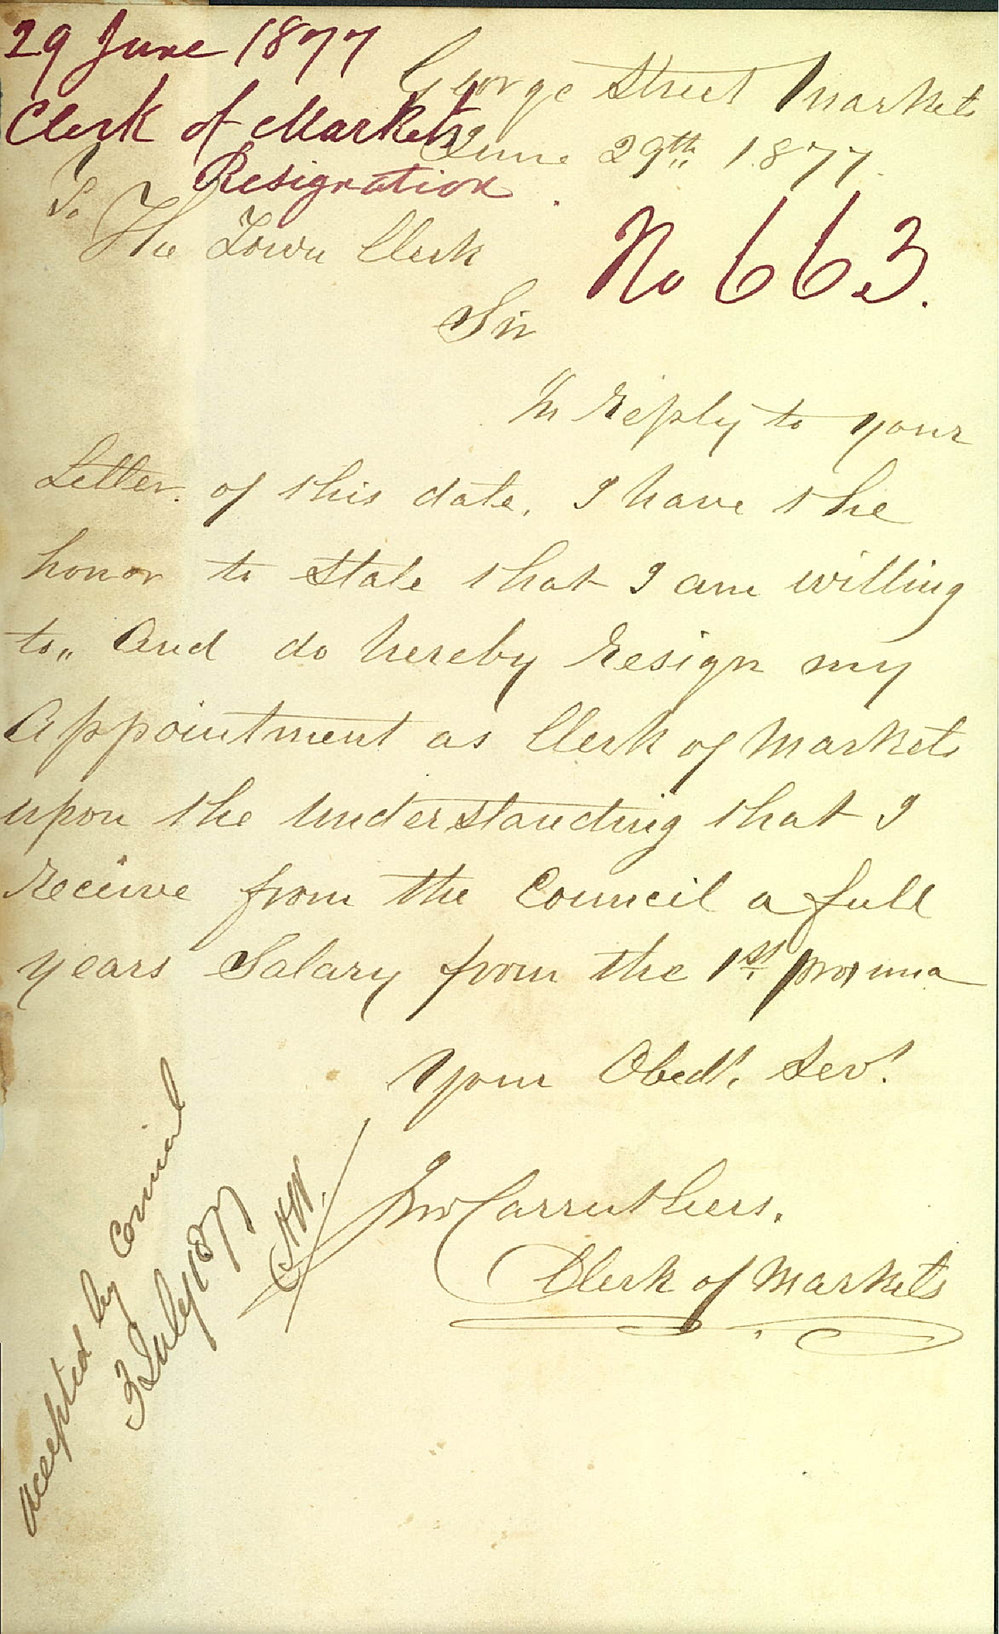 29 June 1877
Clerk of Markets
Resignation
No 663.
George Street Markets
June 29th 1877.
To
The Town Clerk
Sir
In reply to your
Letter. of this date, I have the
honor to state that I am willing
to,, And do hereby resign my
Appointment as Clerk of Markets
upon the Understanding that I
Receive from the Council a full
years Salary from the 1st proxima
Your Obedt. Servt.
Jno Carruthers.
Clerk of Markets
Accepted by Council
3 July 1877